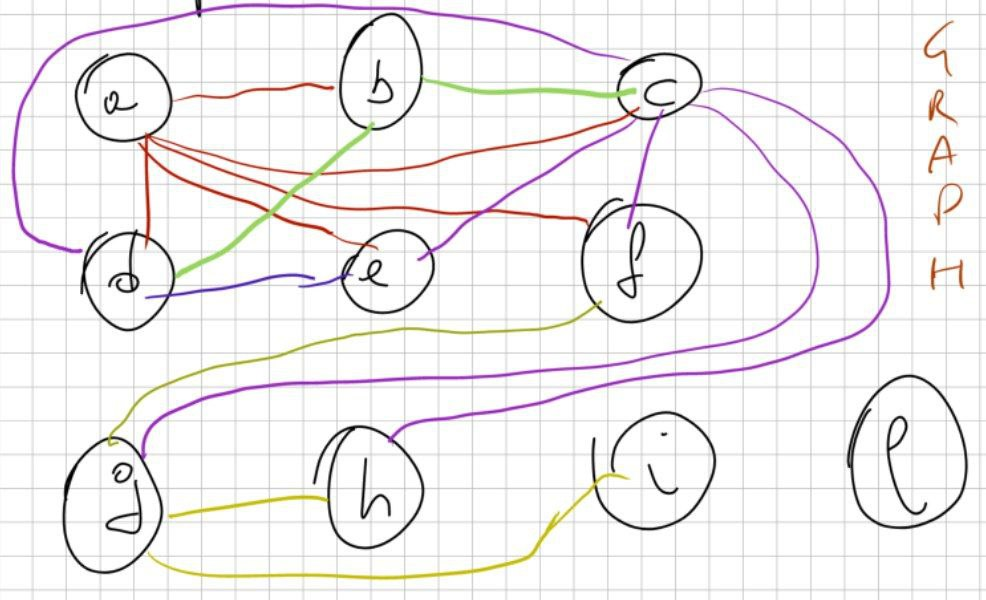 a b c
d e f
g h i l
G
R
A
P
H